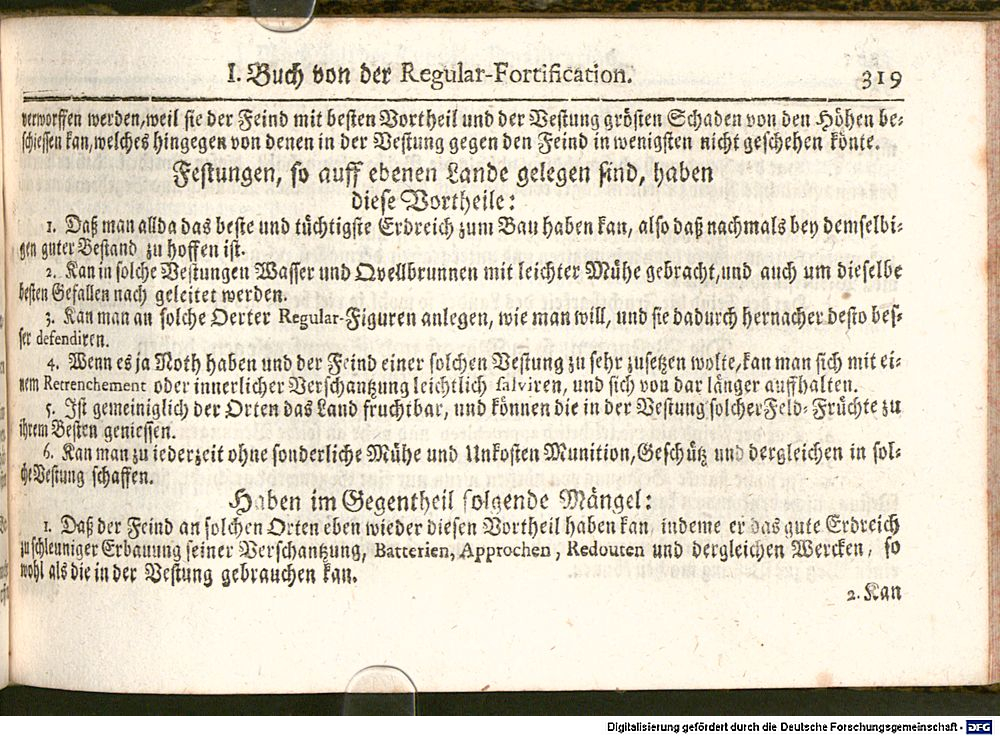 I. Buch von der Regular-Fortification. 319
verworffen werden, weil sie der Feind mit besten Vortheil und der Vestung grösten Schaden von den Höhen be-
schiessen kan, welches hingegen von denen in der Vestung gegen den Feind in wenigsten nicht geschehen könte.
Festungen, so auff ebenen Lande gelegen sind, haben
diese Vortheile:
1. Daß man allda das beste und tüchtigste Erdreich zum Bau haben kan, also daß nachmals bey demselbi-
gen guter Bestand zu hoffen ist.
2. Kan in solche Vestungen Wasser und Qvellbrunnen mit leichter Mühe gebracht, und auch um dieselbe
besten Gefallen nach geleitet werden.
3. Kan man an solche Oerter Regular-Figuren anlegen, wie man will, und sie dadurch hernacher desto bes-
ser defendiren.
4. Wenn es ja Noth haben und der Feind einer solchen Vestung zu sehr zusetzen wolte, kan man sich mit ei-
nem Retrenchement oder innerlicher Verschantzung leichtlich salviren, und sich von dar länger auffhalten.
5. Ist gemeiniglich der Orten das Land fruchtbar, und können die in der Vestung solcher Feld-Früchte zu
ihrem Besten geniessen.
6. Kan man zu iederzeit ohne sonderliche Mühe und Unkosten Munition, Geschütz und dergleichen in sol-
che Vestung schaffen.
Haben im Gegentheil folgende Mängel:
1. Daß der Feind an solchen Orten eben wieder diesen Vortheil haben kan indeme er das gute Erdreich
zu schleuniger Erbauung seiner Verschantzung, Batterien, Approchen, Redouten und dergleichen Wercken, so
wohl als die in der Vestung gebrauchen kan.
2. Kan
Digitalisierung gefördert durch die Deutsche Forschungsgemeinschaft - DFG